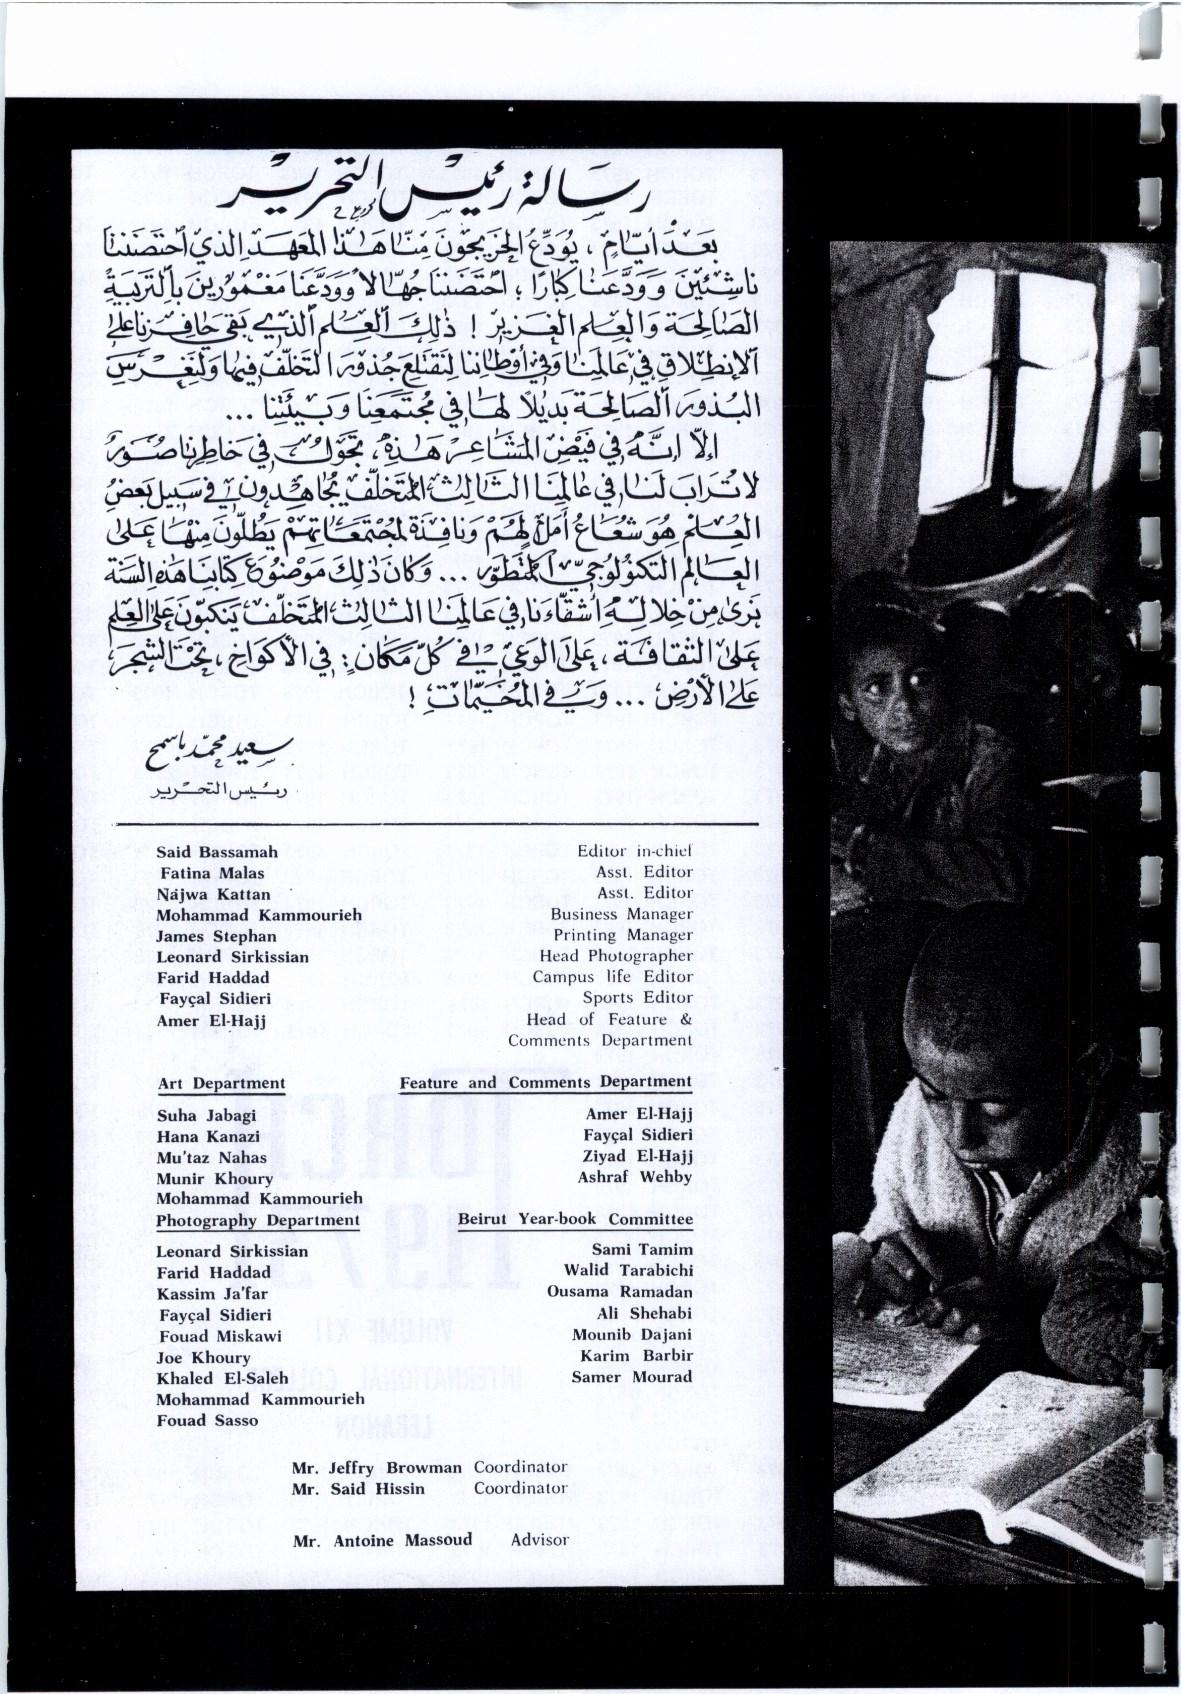 رسالة رئيس التحرير
بعد أيام ، يودع الخريجون منا هذا المعهد الذي احتضننا
ناشئين وودعنا كبارا ؛ احتضننا جهالا وودعنا مغمورين بالتربية
الصالحة والعلم الغزير ! ذلك العلم الذي يبقى حافزنا على
الإنطلاق في عالمنا وفي أوطاننا لنقتلع جذور التخلف فيها ولنغرس
البذور الصالحة بديلا لها في مجتمعنا وبيئتنا ...
إلا إنه في فيض المشاعر هذه ، تجول في خاطرنا صور
لاتراب لنا في عالمنا الثالث المتخلف يجاهدون في سبيل بعض
العلم هو شعاع أمل لهم ونافذة لمجتمعاتهم يطلون منها على
العالم التكنولوجي المتطور ... وكان ذلك موضوع كتابنا هذه السنة
نرى من خلاله أشقاءنا في عالمنا الثالث المتخلف ينكبون على العلم
على الثقافة ، على الوعي في كل مكان : في الأكواخ ، تحت الشجر
على الأرض ... وفي المخيمات !
سعيد محمد باسمح
رئيس التحرير
Said Bassamah Editor in-chief
Fatina Malas Asst. Editor
Najwa Kattan Asst. Editor
Mohammad Kammourieh Business Manager
James Stephan Printing Manager
Leonard Sirkissian Head Photographer
Farid Haddad Campus life Editor
Fayçal Sidieri Sports Editor
Amer El-Hajj Head of Feature &
Comments Department
Art Department
Suha Jabagi
Hana Kanazi
Mu'taz Nahas
Munir Khoury
Mohammad Kammourieh
Feature and Comments Department
Amer El-Hajj
Fayçal Sidieri
Ziyad El-Hajj
Ashraf Wehby
Photography Department
Leonard Sirkissian
Farid Haddad
Kassim Ja'far
Fayçal Sidieri
Fouad Miskawi
Joe Khoury
Khaled El-Saleh
Mohammad Kammourieh
Fouad Sasso
Beirut Year-book Committee
Sami Tamim
Walid Tarabichi
Ousama Ramadan
Ali Shehabi
Mounib Dajani
Karim Barbir
Samer Mourad
Mr. Jeffry Browman Coordinator
Mr. Said Hissin Coordinator
Mr. Antoine Massoud Advisor